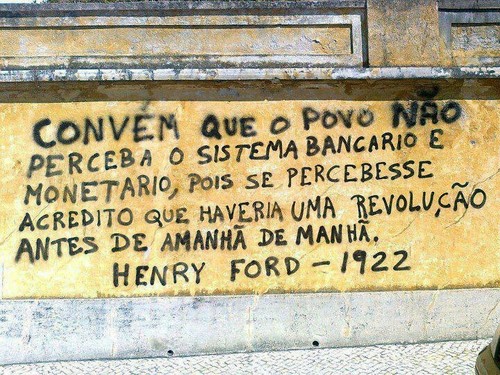 CONVÉM QUE O POVO NÃO
PERCEBA O SISTEMA BANCARIO E
MONETARIO, POIS SE PERCEBESSE
ACREDITO QUE HAVERIA UMA REVOLUÇÃO
ANTES DE AMANHÃ DE MANHÃ.
HENRY FORD - 1922